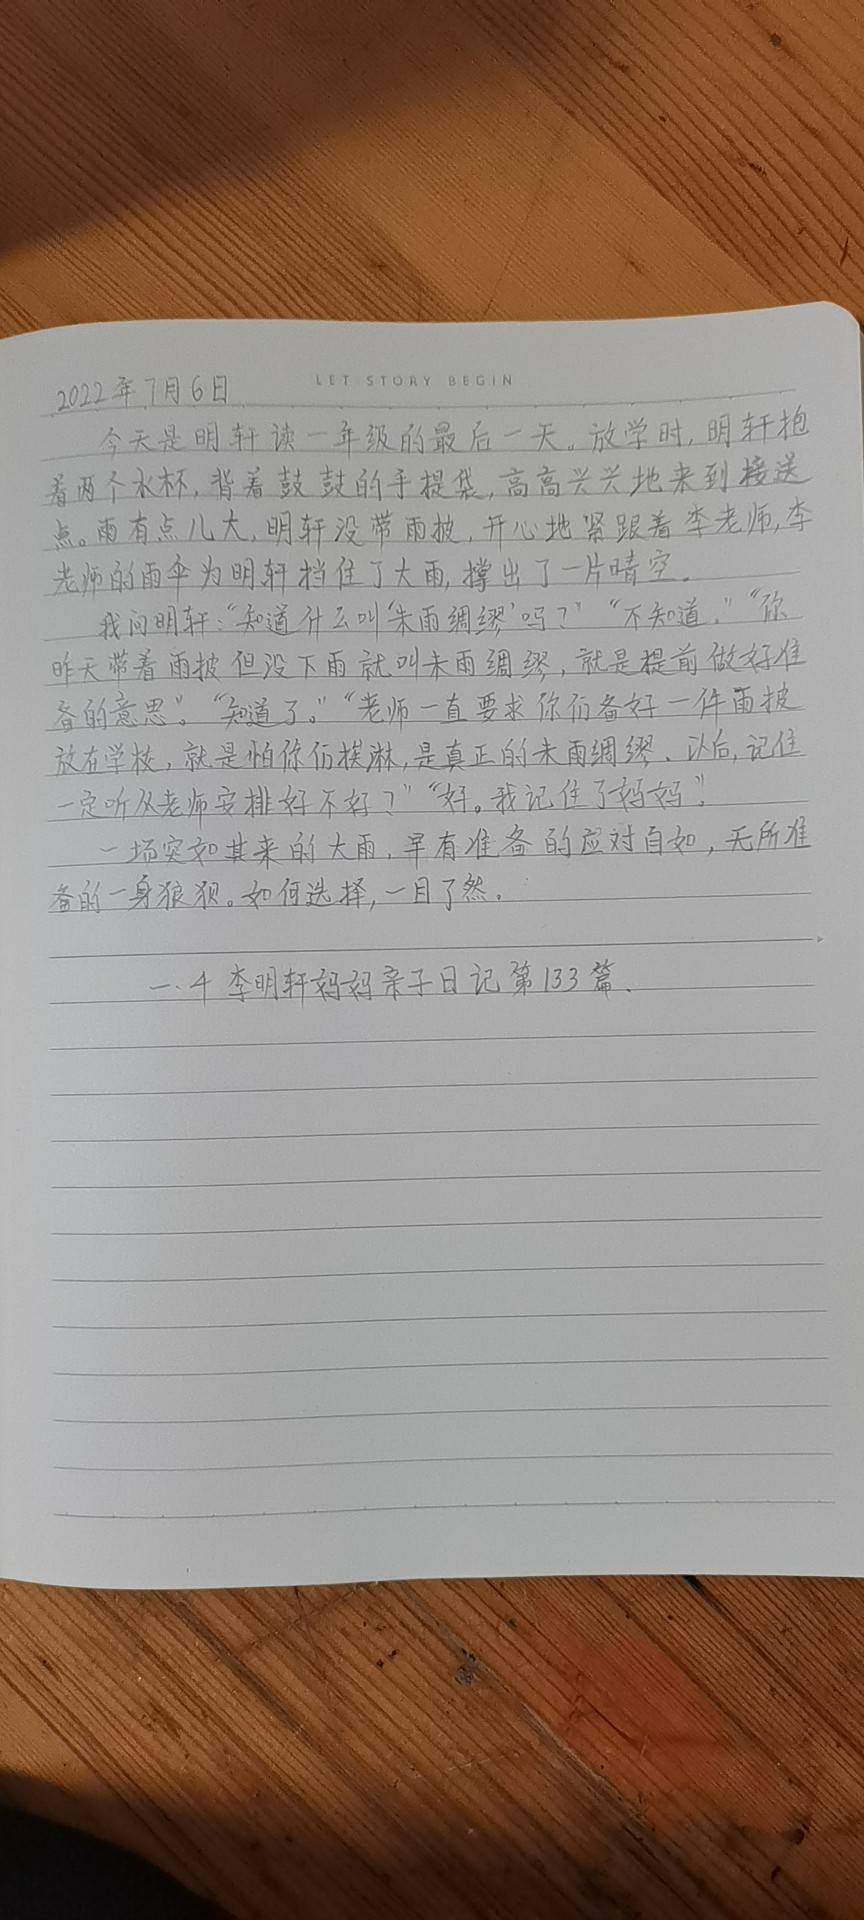 LET STORY BEGIN
2022年7月6日
今天是明轩读一年级的最后一天。放学时,明轩抱
着两个水杯,背着鼓鼓的手提袋,高高兴兴地来到接送
点。雨有点儿大,明轩没带雨披,开心地紧跟着李老师,李
老师的雨伞为明轩挡住了大雨,撑出了一片晴空。
我问明轩:“知道什么叫‘未雨绸缪’吗?”“不知道。”“你
昨天带着雨披但没下雨就叫未雨绸缪,就是提前做好准
备的意思”。“知道了。”“老师一直要求你们备好一件雨披
放在学校,就是怕你们挨淋,是真正的未雨绸缪。以后,记住
一定听从老师安排好不好?”“好。我记住了妈妈”。
一场突如其来的大雨,早有准备的应对自如,无所准
备的一身狼狈。如何选择,一目了然。
一.4 李明轩妈妈亲子日记第133篇.